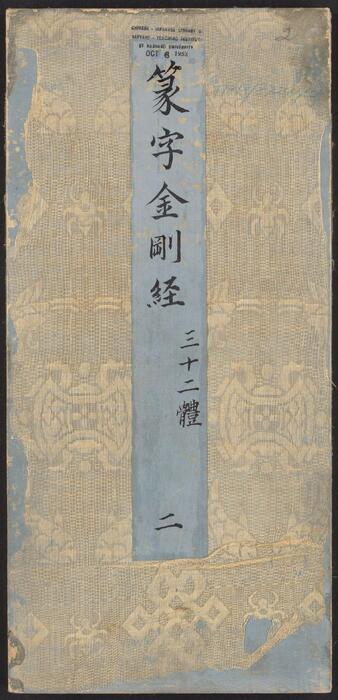 CHINESE - JAPANESE LIBRARY O
HARVARD - YENCHING INSTITUT
AT HARVARD UNIVERSITY
OCT 6 1953
2
篆字金剛経
三十二體
二